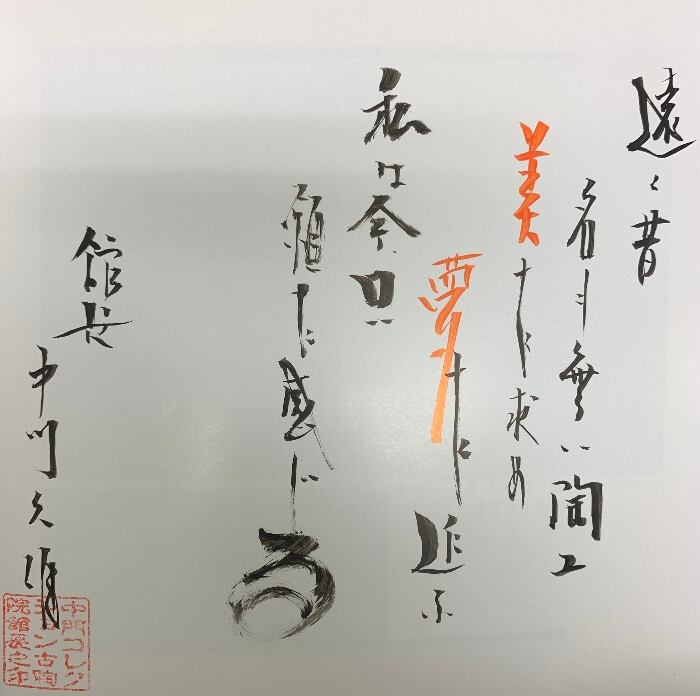 遠く昔
名も無い陶工
美を求め
夢を追ふ
私は今
を感じる
館長
中門久
中門コレク
ション古陶
院館長之印